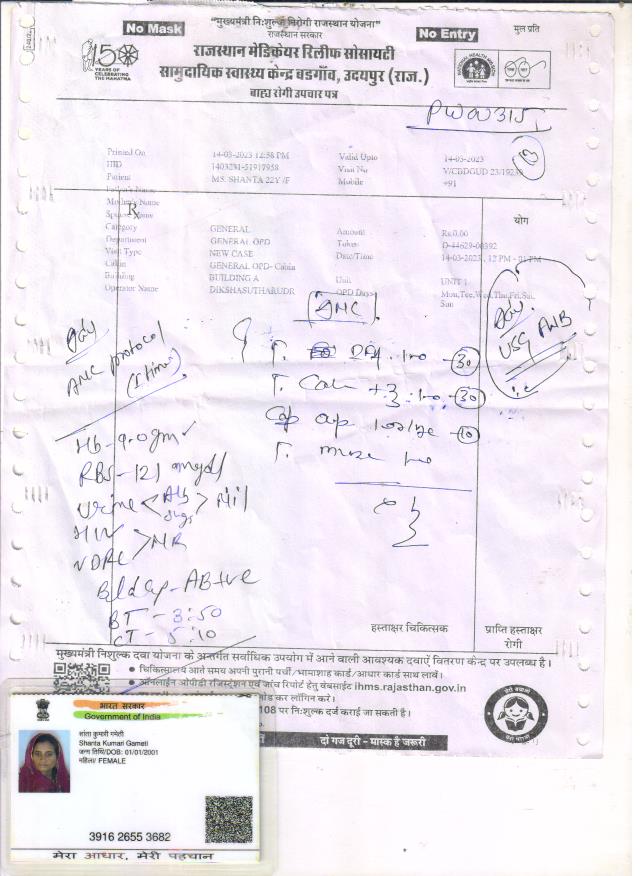 No Mask
"मुख्यमंत्री निःशुल्क निरोगी राजस्थान योजना"
राजस्थान सरकार
No Entry
मूल प्रति
150
YEARS OF
CELEBRATING
THE MAHATMA
राजस्थान मेडिकेयर रिलीफ सोसायटी
सामुदायिक स्वास्थ्य केन्द्र बडगाँव, उदयपुर (राज.)
बाह्य रोगी उपचार पत्र
Printed On 14-03-2023 12:58 PM Valid Upto 14-03-2023
HID 1403231-51917958 Visit No
Patient MS. SHANTA 22Y /F Mobile +91
Father's Name
Mother's Name
Spouse Name
Rx
योग
Category GENERAL Amount Rs.0.00
Department GENERAL OPD Token D-44629-00392
Visit Type NEW CASE Date/Time 14-03-2023 , 12 PM - 01 PM
Cabin GENERAL OPD- Cabin
Building BUILDING A Unit UNIT 1
Operator Name DIKSHASUTHARUDR OPD Days Mon,Tue,Wed,Thu,Fri,Sat,
Sun
ANC
Adv
USG
Adv
ANC protocol
(I time)
30
30
10
Hb - 9.0 gm
RBS - 121 mg/dl
Urine < Alb Sugar > Nil
HIV
VDRL > NR
Bld Gp - AB +ve
BT - 3:50
CT - 5:10
हस्ताक्षर चिकित्सक
प्राप्ति हस्ताक्षर
रोगी
मुख्यमंत्री निशुल्क दवा योजना के अन्तर्गत सर्वाधिक उपयोग में आने वाली आवश्यक दवाऐं वितरण केन्द्र पर उपलब्ध है।
• चिकित्सालय आते समय अपनी पुरानी पर्ची/भामाशाह कार्ड/आधार कार्ड साथ लावें।
• ऑनलाईन ओपीडी रजिस्ट्रेशन एवं जांच रिपोर्ट हेतु वेबसाईट ihms.rajasthan.gov.in
कोड कर लॉगिन करें।
108 पर निःशुल्क दर्ज कराई जा सकती है।
दो गज दूरी - मास्क है जरूरी
भारत सरकार
Government of India
सांता कुमारी गमेती
Shanta Kumari Gameti
जन्म तिथि/DOB: 01/01/2001
महिला/ FEMALE
3916 2655 3682
मेरा आधार, मेरी पहचान